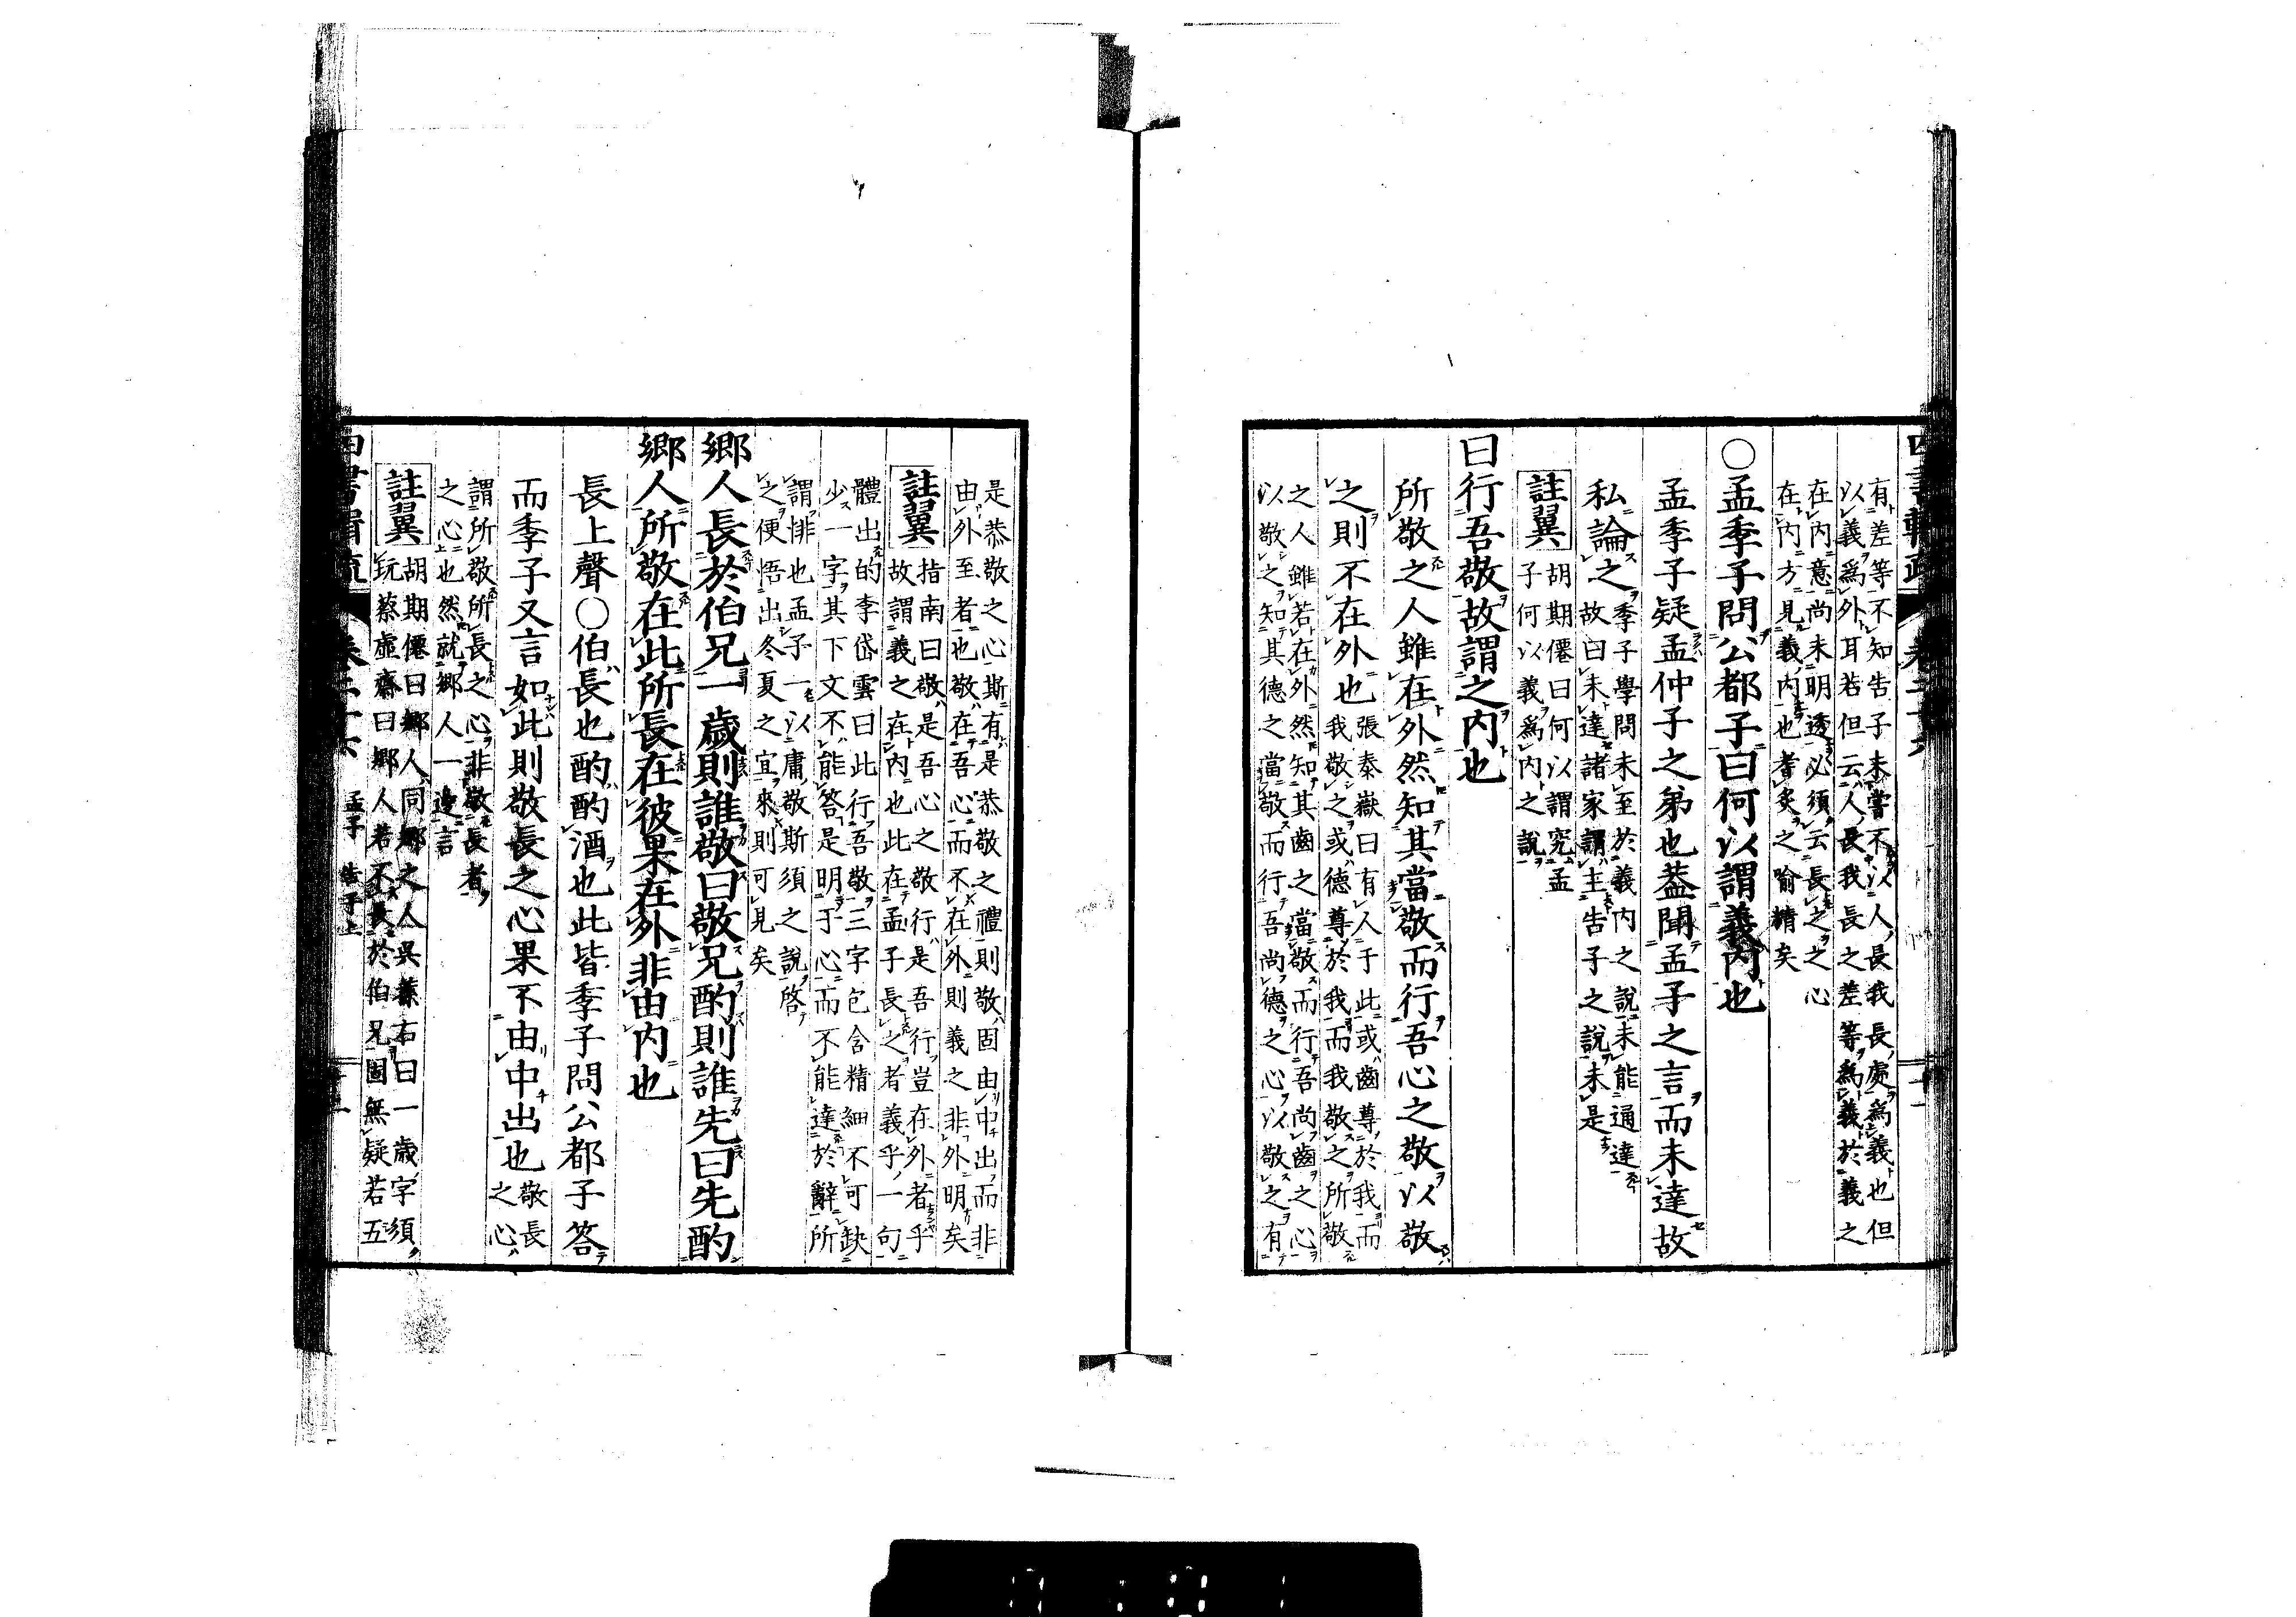 有差等不知告子未嘗不以人長我長處為義也但
以義為外耳若但云人長我長之差等為義於義之
在內意尚未明透必須云長之之心
在內方見義內也耆炙之喻精矣
○孟季子問公都子曰何以謂義內也
孟季子疑孟仲子之弟也蓋聞孟子之言而未達故
私論之
季子學問未至於義內之說未能通達
故曰未達諸家謂主告子之說未是
註翼
胡期僊曰何以謂究孟
子何以義為內之說
曰行吾敬故謂之內也
所敬之人雖在外然知其當敬而行吾心之敬以敬
之則不在外也
張泰嶽曰有人于此或齒尊於我而
我敬之或德尊於我而我敬之所敬
之人雖若在外然知其齒之當敬而行吾尚齒之心
以敬之知其德之當敬而行吾尚德之心以敬之有
是恭敬之心斯有是恭敬之禮則敬固由中出而非
由外至者也敬在吾心而不在外則義之非外明矣
註翼
指南曰敬是吾心之敬行是吾行豈在外者乎
故謂義之在內也此在孟子長之者義乎一句
體出的李岱雲曰此行吾敬三字包含精細不可缺
少一字其下文不能答是明于心而不能達於辭所
謂悱也孟子一以庸敬斯須之說啓
之便悟出冬夏之宜來則可見矣
鄉人長於伯兄一歲則誰敬曰敬兄酌則誰先曰先酌
鄉人所敬在此所長在彼果在外非由內也
長上聲○伯長也酌酌酒也此皆季子問公都子答
而季子又言如此則敬長之心果不由中出也
敬長
之心
謂所敬所長之心非敬長者
之心也然就鄉人一邊言
註翼
胡期僊曰鄉人同鄉之人吳蓀右曰一歲字須
玩蔡虛齋曰鄉人若不長於伯兄固無疑若五
孟子 告子上